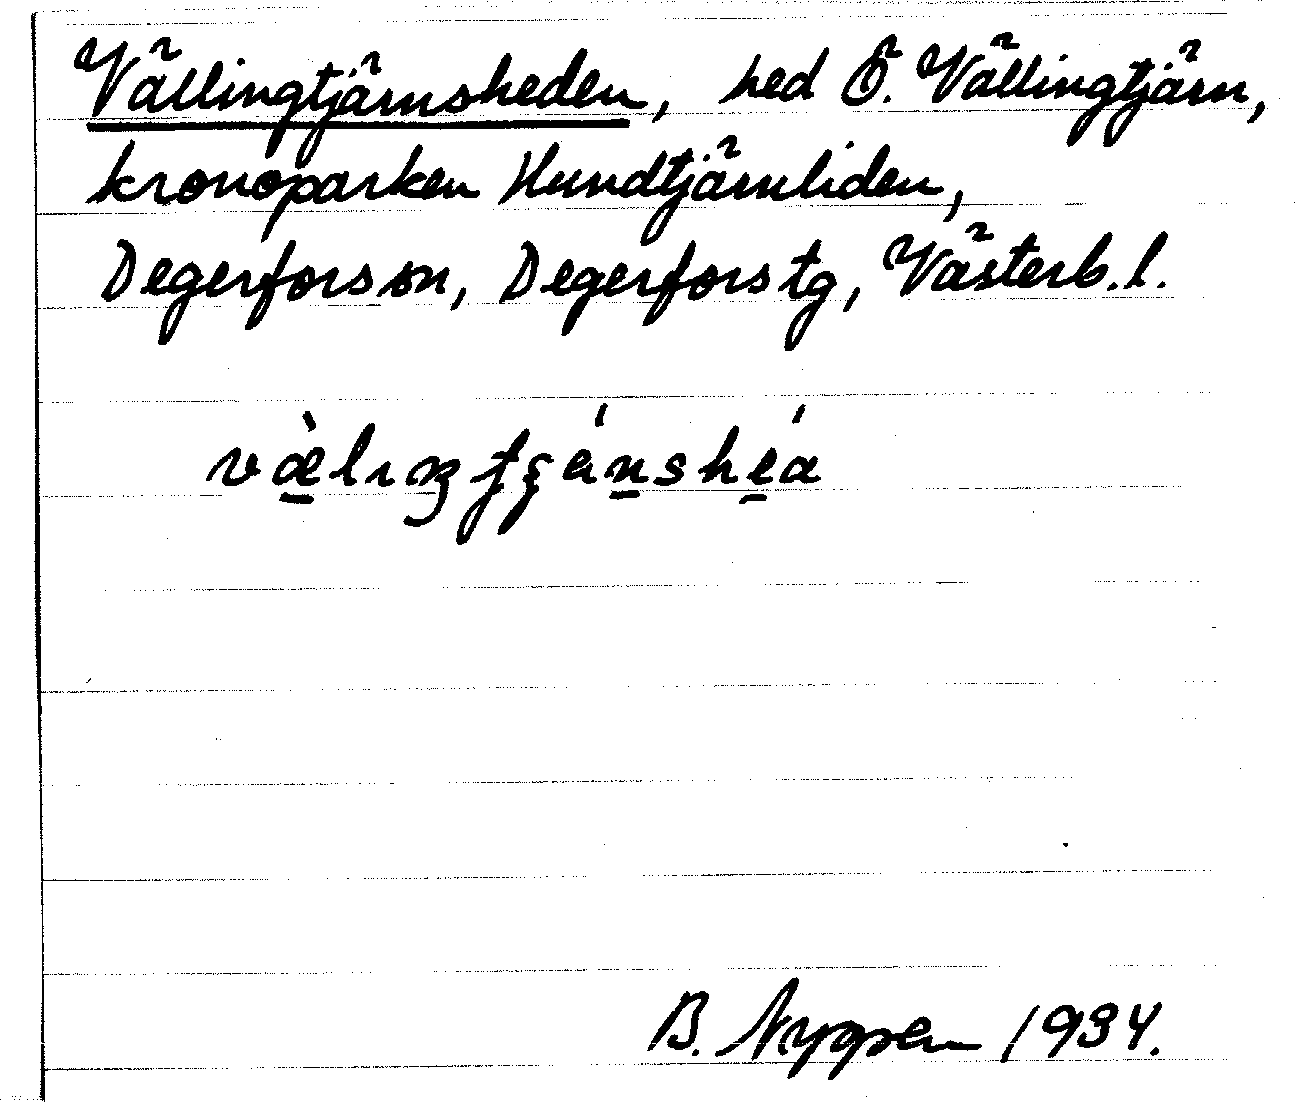 Vällingtjärnsheden, hed Ö. Vällingtjärn,
kronoparken Hundtjärnliden,
Degerfors sn, Degerfors tg, Västerb. l.
B. Nygren 1934.